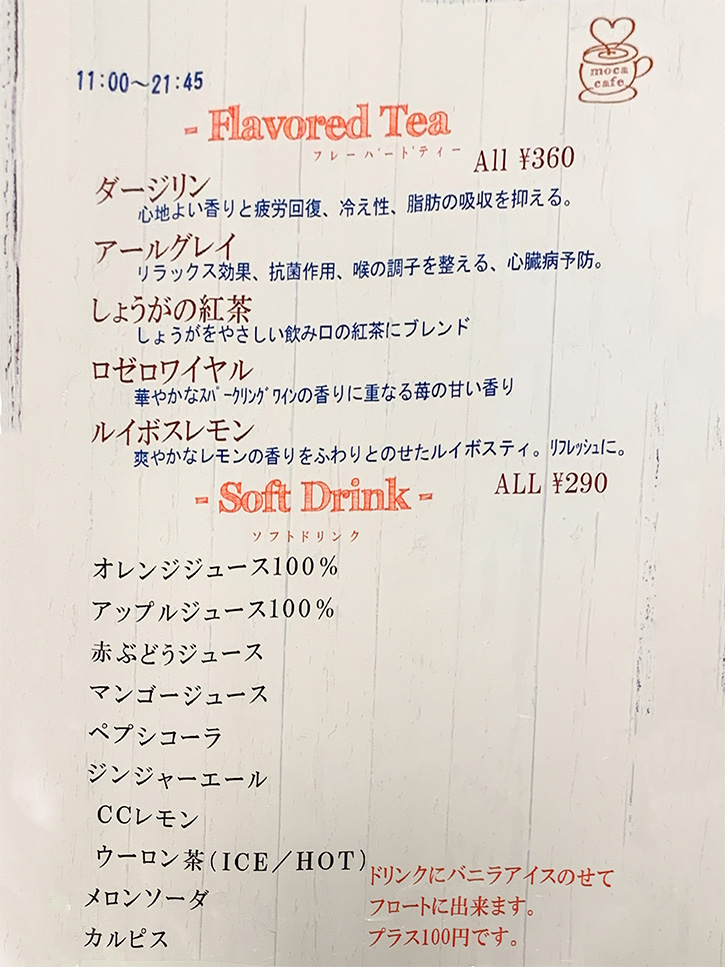 moca
cafe
11:00～21:45
- Flavored Tea
フレーバードティー
All ¥360
ダージリン
心地よい香りと疲労回復、冷え性、脂肪の吸収を抑える。
アールグレイ
リラックス効果、抗菌作用、喉の調子を整える、心臓病予防。
しょうがの紅茶
しょうがをやさしい飲み口の紅茶にブレンド
ロゼロワイヤル
華やかなｽﾊﾟｰｸﾘﾝｸﾞﾜｲﾝの香りに重なる苺の甘い香り
ルイボスレモン
爽やかなレモンの香りをふわりとのせたルイボスティ。ﾘﾌﾚｯｼｭに。
- Soft Drink -
ALL ¥290
ソフトドリンク
オレンジジュース100％
アップルジュース100％
赤ぶどうジュース
マンゴージュース
ペプシコーラ
ジンジャーエール
CCレモン
ウーロン茶(ICE／HOT)
メロンソーダ
カルピス
ドリンクにバニラアイスのせて
フロートに出来ます。
プラス100円です。